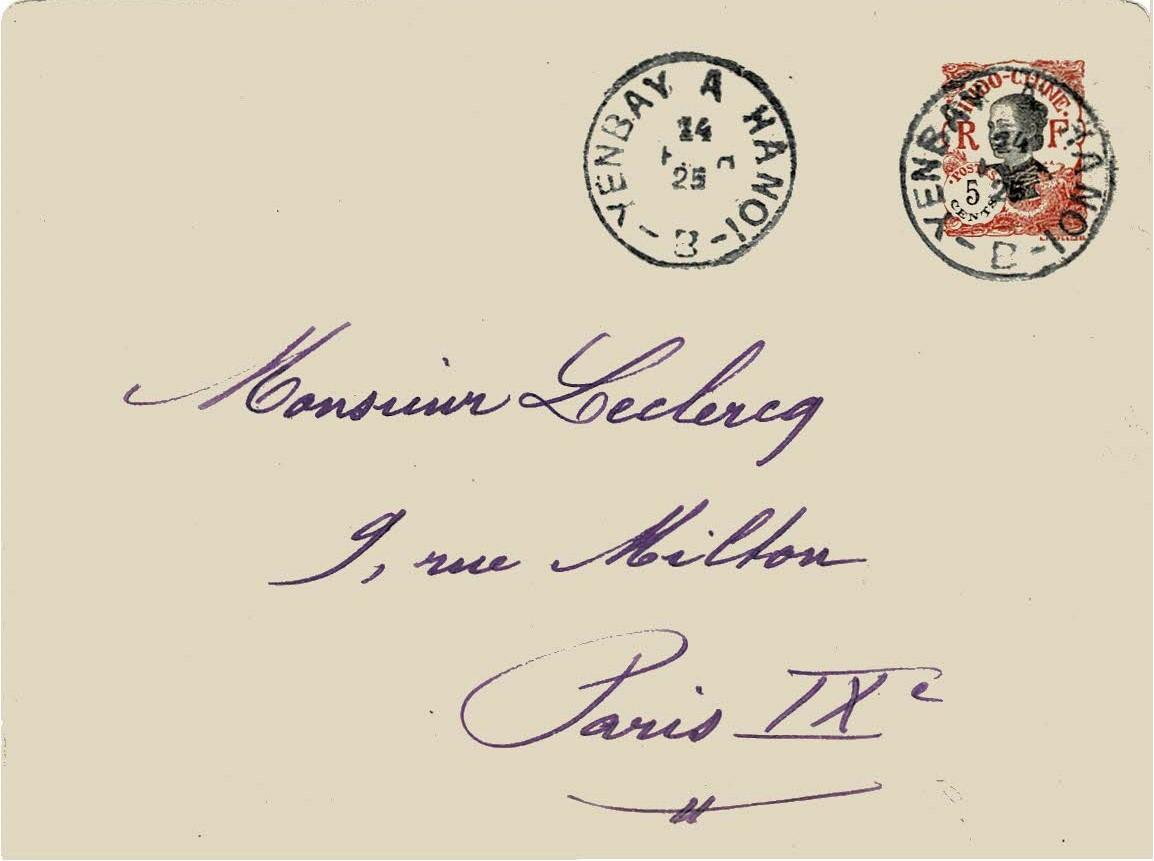 YENBAY A HANOI
24
25
- B -
INDO-CHINE
R F
POSTES
5
CENTS
YENBAY A HANOI
24
25
- B -
Monsieur Leclercq
9, rue Milton
Paris IXe